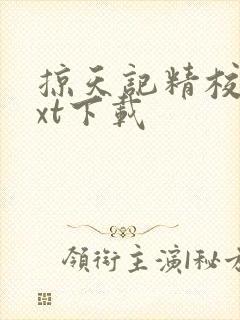 掠天記精校
xt下載
領銜主演|秘方